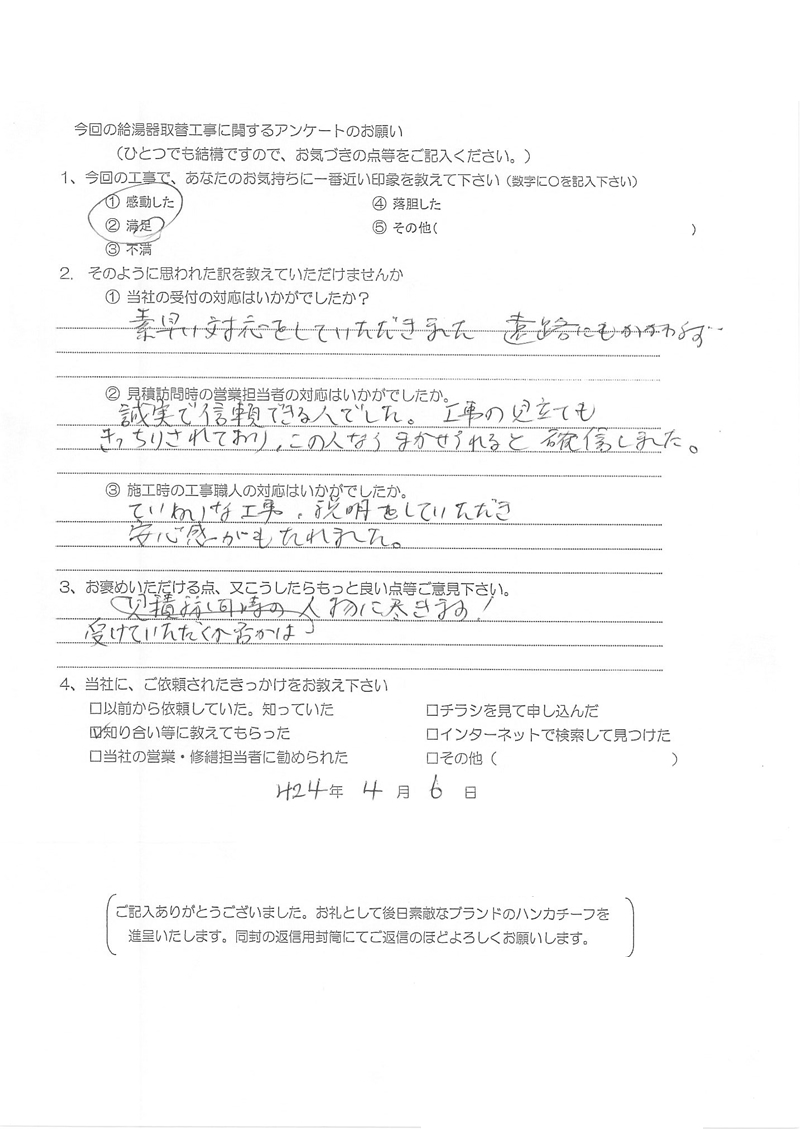 今回の給湯器取替工事に関するアンケートのお願い
（ひとつでも結構ですので、お気づきの点等をご記入ください。）
1、今回の工事で、あなたのお気持ちに一番近い印象を教えて下さい（数字に○を記入下さい）
① 感動した ④ 落胆した
② 満足 ⑤ その他( )
③ 不満
2. そのように思われた訳を教えていただけませんか
① 当社の受付の対応はいかがでしたか？
素早い対応をしていただきました 遠路にもかかわらず…
② 見積訪問時の営業担当者の対応はいかがでしたか。
誠実で信頼できる人でした。工事の見立ても
きっちりされており、この人なら まかせられると 確信しました。
③ 施工時の工事職人の対応はいかがでしたか。
ていねいな工事、説明をしていただき
安心感がもたれました。
3、お褒めいただける点、又こうしたらもっと良い点等ご意見下さい。
見積訪問時の人物に尽きます！
受けていただくか否かは
4、当社に、ご依頼されたきっかけをお教え下さい
□以前から依頼していた。知っていた □チラシを見て申し込んだ
☑知り合い等に教えてもらった □インターネットで検索して見つけた
□当社の営業・修繕担当者に勧められた □その他（ ）
H24年 4月 6日
ご記入ありがとうございました。お礼として後日素敵なブランドのハンカチーフを
進呈いたします。同封の返信用封筒にてご返信のほどよろしくお願いします。